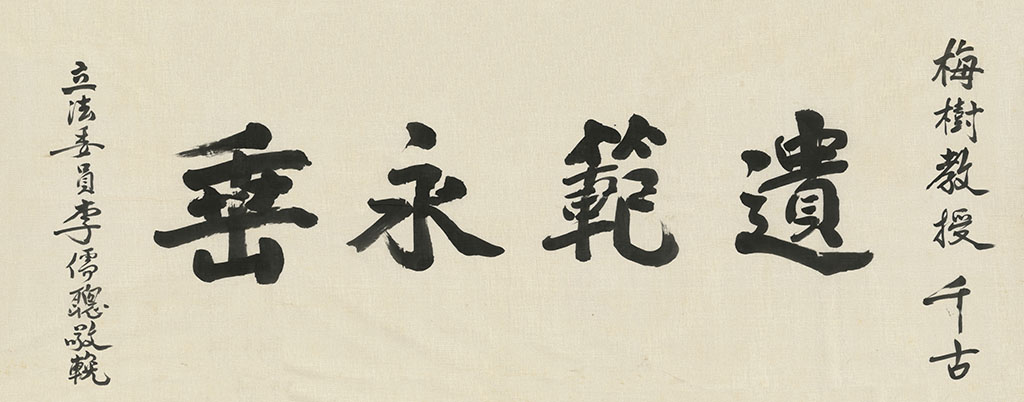 梅樹教授 千古
遺範永垂
立法委員李儒聰敬輓